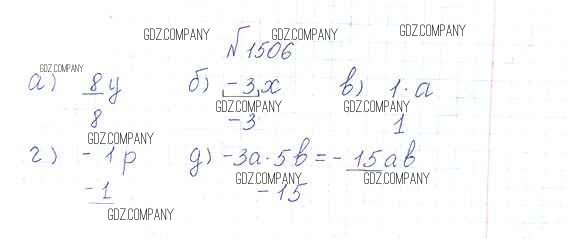 GDZ.COMPANY GDZ.COMPANY GDZ.COMPANY
№1506
GDZ.COMPANY
а) 8y б) -3,x в) 1·a
GDZ.COMPANY GDZ.COMPANY
8 -3 1
GDZ.COMPANY
г) -1p д) -3a·5b=-15ab
-1 GDZ.COMPANY -15 GDZ.COMPANY
GDZ.COMPANY